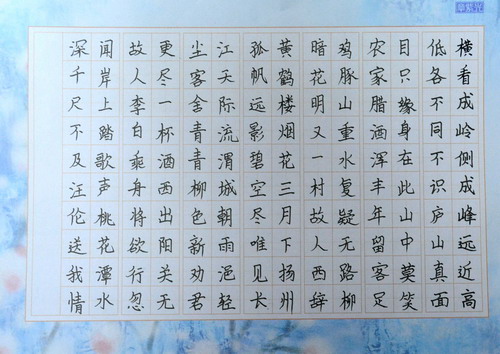 横看成岭侧成峰远近高
低各不同不识庐山真面
目只缘身在此山中莫笑
农家腊酒浑丰年留客足
鸡豚山重水复疑无路柳
暗花明又一村故人西辞
黄鹤楼烟花三月下扬州
孤帆远影碧空尽唯见长
江天际流渭城朝雨浥轻
尘客舍青青柳色新劝君
更尽一杯酒西出阳关无
故人李白乘舟将欲行忽
闻岸上踏歌声桃花潭水
深千尺不及汪伦送我情